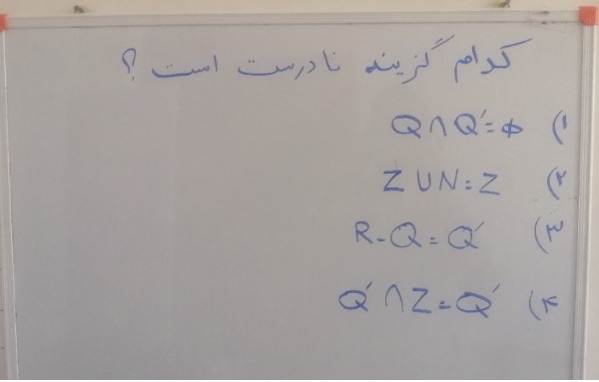 کدام گزینه نادرست است؟
۱) Q∩Q′=ϕ
۲) Z∪N=Z
۳) R-Q=Q′
۴) Q′∩Z=Q′